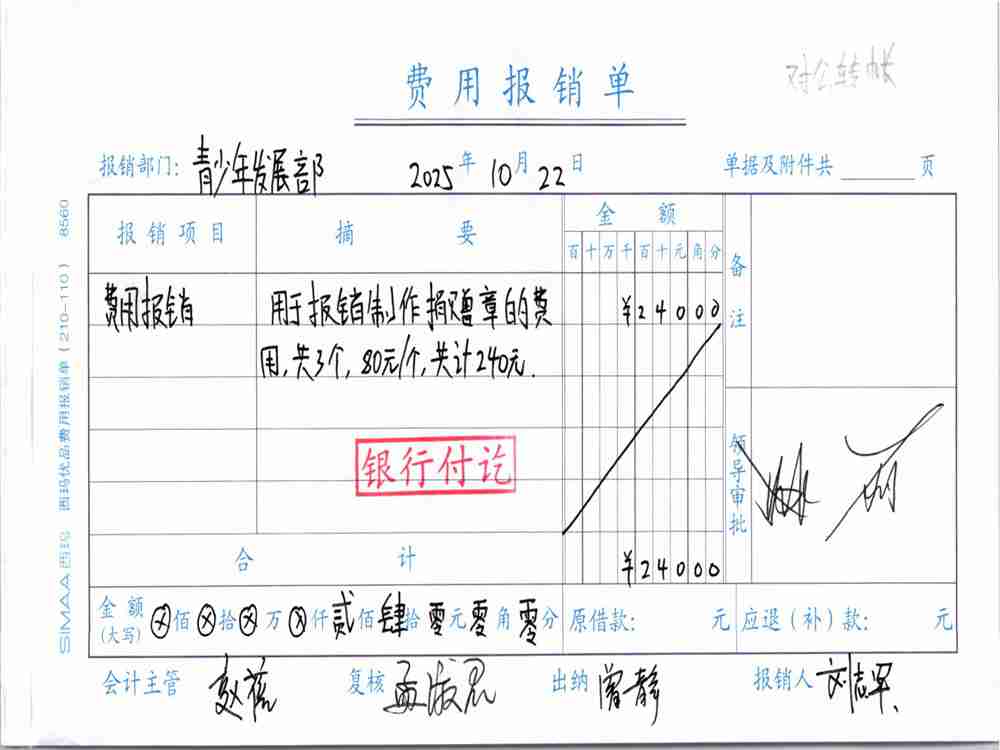 对公转帐
费用报销单
报销部门: 青少年发展部 2025年10月22日 单据及附件共 页
报销项目 摘要 金额 备注
百十万千百十元角分
费用报销 用于报销制作捐赠章的费 ¥24000
用,共3个,80元/个,共计240元.
银行付讫
领导审批
合计 ¥24000
金额(大写) ⊗佰⊗拾⊗万⊗仟贰佰肆拾零元零角零分 原借款: 元 应退(补)款: 元
会计主管 复核 出纳 曾静 报销人 刘志军
SIMAA西玛 西玛优品费用报销单(210—110) 8560